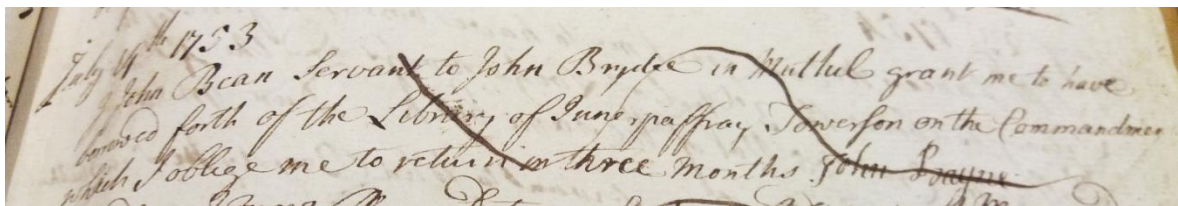 July 19th 1753
I John Bean Servant to John Brydee in Muthel grant me to have
borrowed forth of the Library of Innerpaffray Towerson on the Commandmen
which I oblige me to return in three Months John Bayne